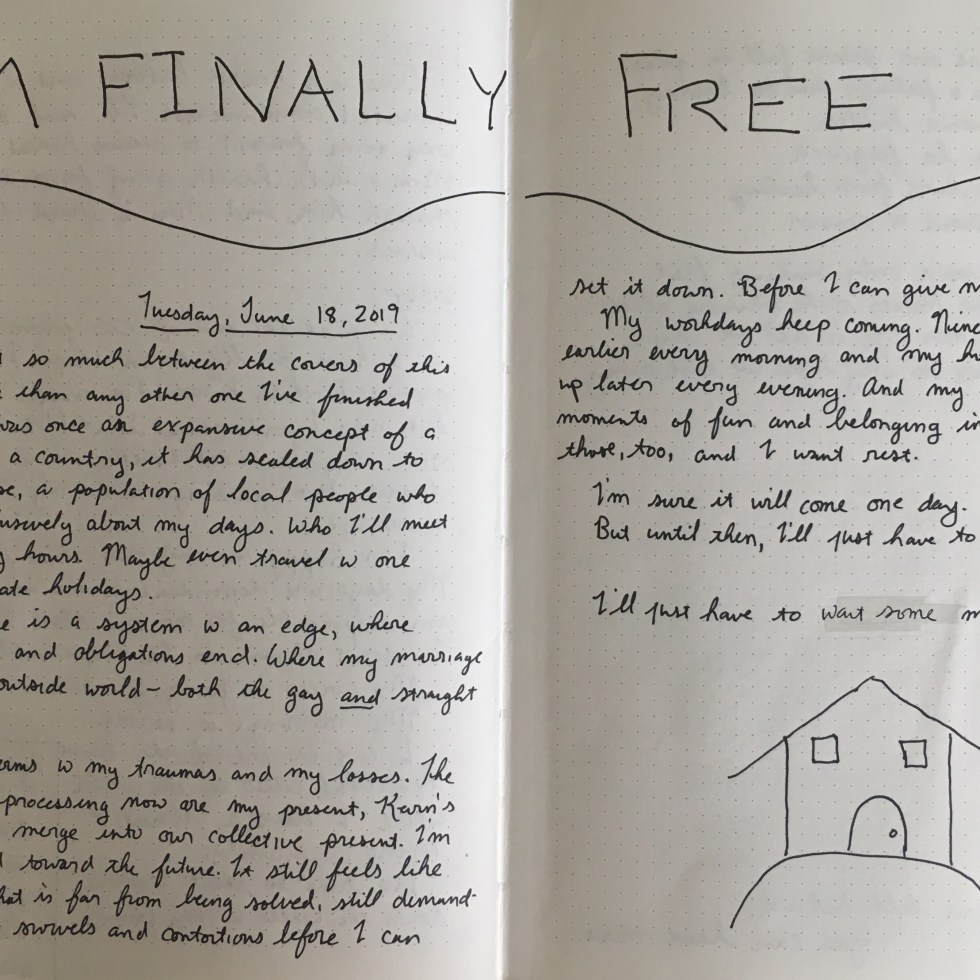 FINALLY FREE
Tuesday, June 18, 2019
so much between the covers of this
than any other one I've finished
was once an expansive concept of a
a country, it has scaled down to
a population of local people who
about my days. Who I'll meet
hours. Maybe even travel w one
holidays.
is a system w an edge, where
and obligations end. Where my marriage
outside world - both the gay and straight
w my traumas and my losses. The
processing now are my present, Karin's
merge into our collective present. I'm
toward the future. It still feels like
is far from being solved, still demand-
swivels and contortions before I can
set it down. Before I can give
My workdays keep coming. Nine
earlier every morning and my
up later every evening. And my
moments of fun and belonging in
those, too, and I want rest.
I'm sure it will come one day.
But until then, I'll just have to
I'll just have to want some